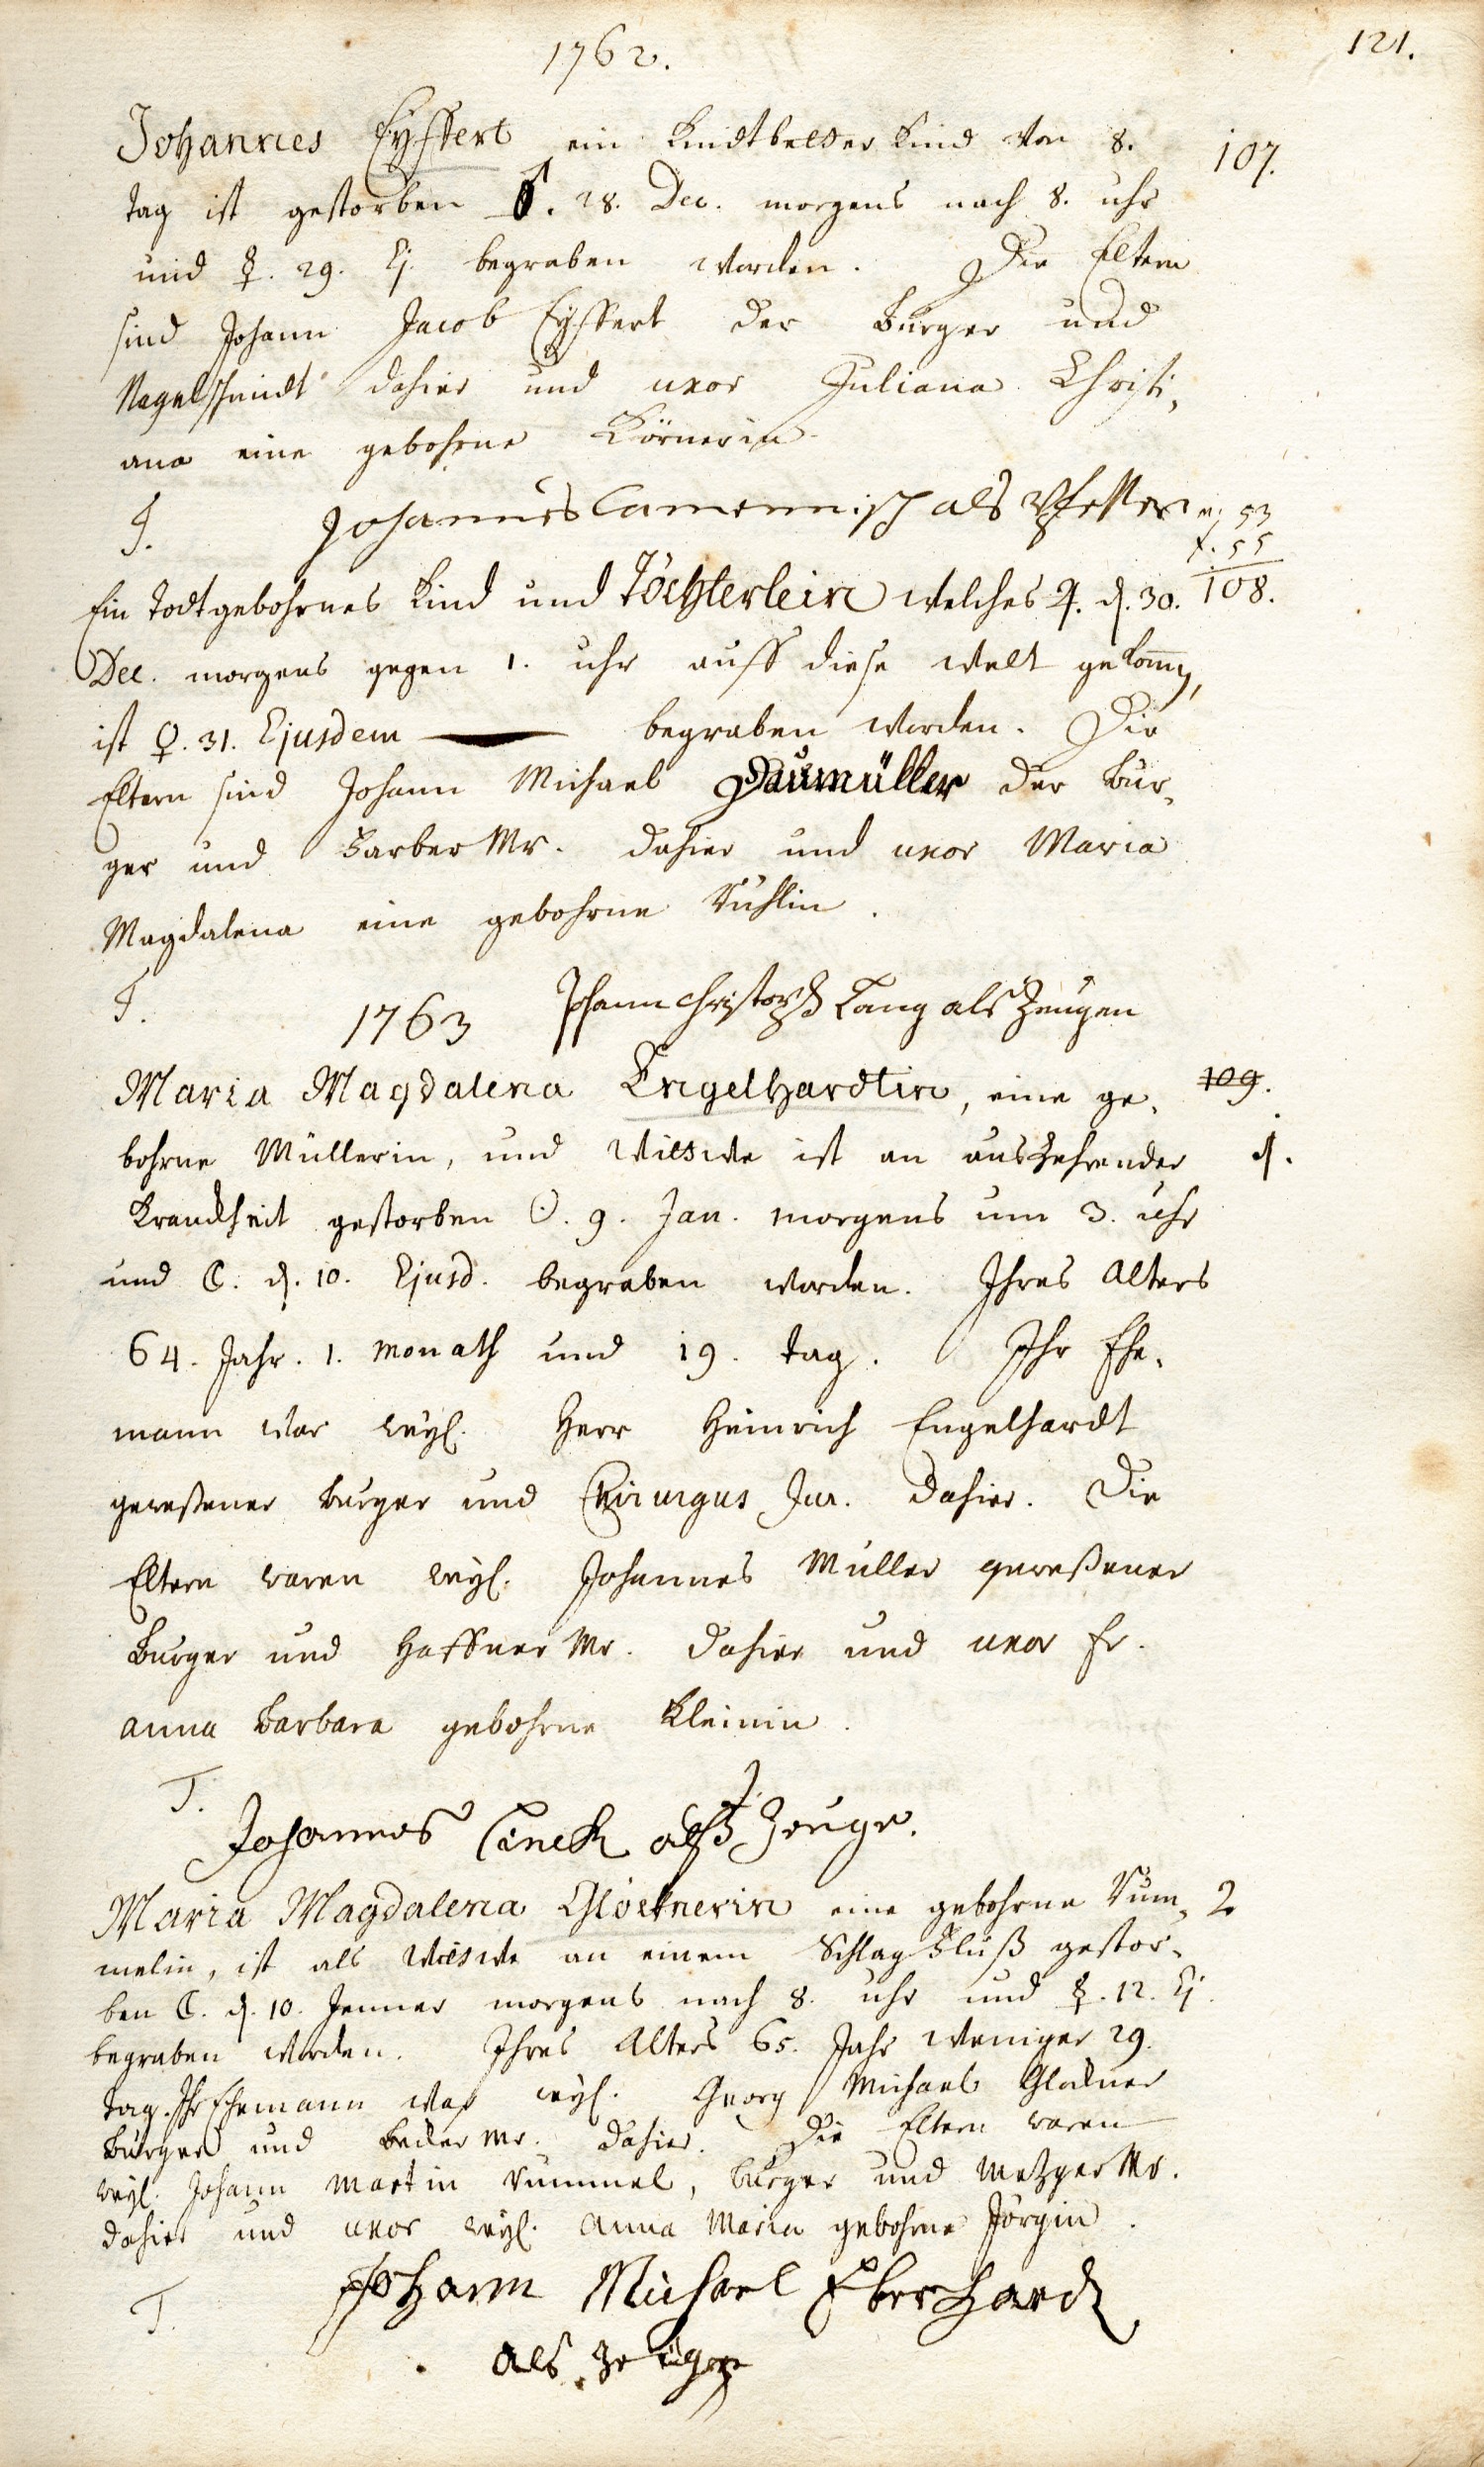 1762.
121.
Johannes Eyffert ein Kindtbetter Kind von 8. 107.
tag ist gestorben ♂. 28. Dec. morgens nach 8. uhr
und ☿. 29. Ej. begraben worden. Die Eltern
sind Johann Jacob Eyffert der Burger und
Nagelschmidt dahier und uxor Juliana Christi,
ana eine gebohrne Körnerin
T. Johannes Camennisch als m. 53
f. 55
Ein Todtgebohrnes Kind und Töchterlein welches ♃. d. 30. 108.
Dec. morgens gegen 1. uhr auff diese welt gekomen,
ist ♀. 31. Ejusdem — begraben worden. Die
Eltern sind Johann Michael Daumüller der Bur,
ger und Farber Mr. dahier und uxor Maria
Magdalena eine gebohrne Ruhlin.
T. 1763 Johann Christoph Lang als Zeugen
Maria Magdalena Engelhardtin, eine ge, 109.
bohrne Müllerin, und Wittwe ist an auszehrender 1.
Kranckheit gestorben ☉. 9. Jan. morgens um 3. uhr
und ☾. d. 10. Ejusd. begraben worden. Ihres Alters
64. Jahr. 1. Monath und 19. tag. Ihr Ehe,
mann war weyl. Herr Heinrich Engelhardt
geweßener Burger und Chirurgus Jur. dahier. Die
Eltern waren weyl. Johannes Müller geweßener
Burger und Haffner Mr. dahier und uxor Fr.
anna Barbara gebohrne Kleinin.
T. Johannes Linck alß Zeuge.
Maria Magdalena Glöcknerin eine gebohrne Rum, 2
melin, ist als Wittwe an einem Schlag Fluß gestor,
ben ☾. d. 10. Jenner morgens nach 8. uhr und ☿. 12. Ej.
begraben worden. Ihres Alters 65. Jahr weniger 29.
tag. Ihr Ehemann war weyl. Georg Michael Glöckner
Burger und Becker Mr. dahier. Die Eltern waren
weyl. Johann Martin Rummel, Burger und Metzger Mr.
dahier und uxor weyl. Anna Maria gebohrne Jörgin.
T. Johann Michael Eberhardt
als zeüge